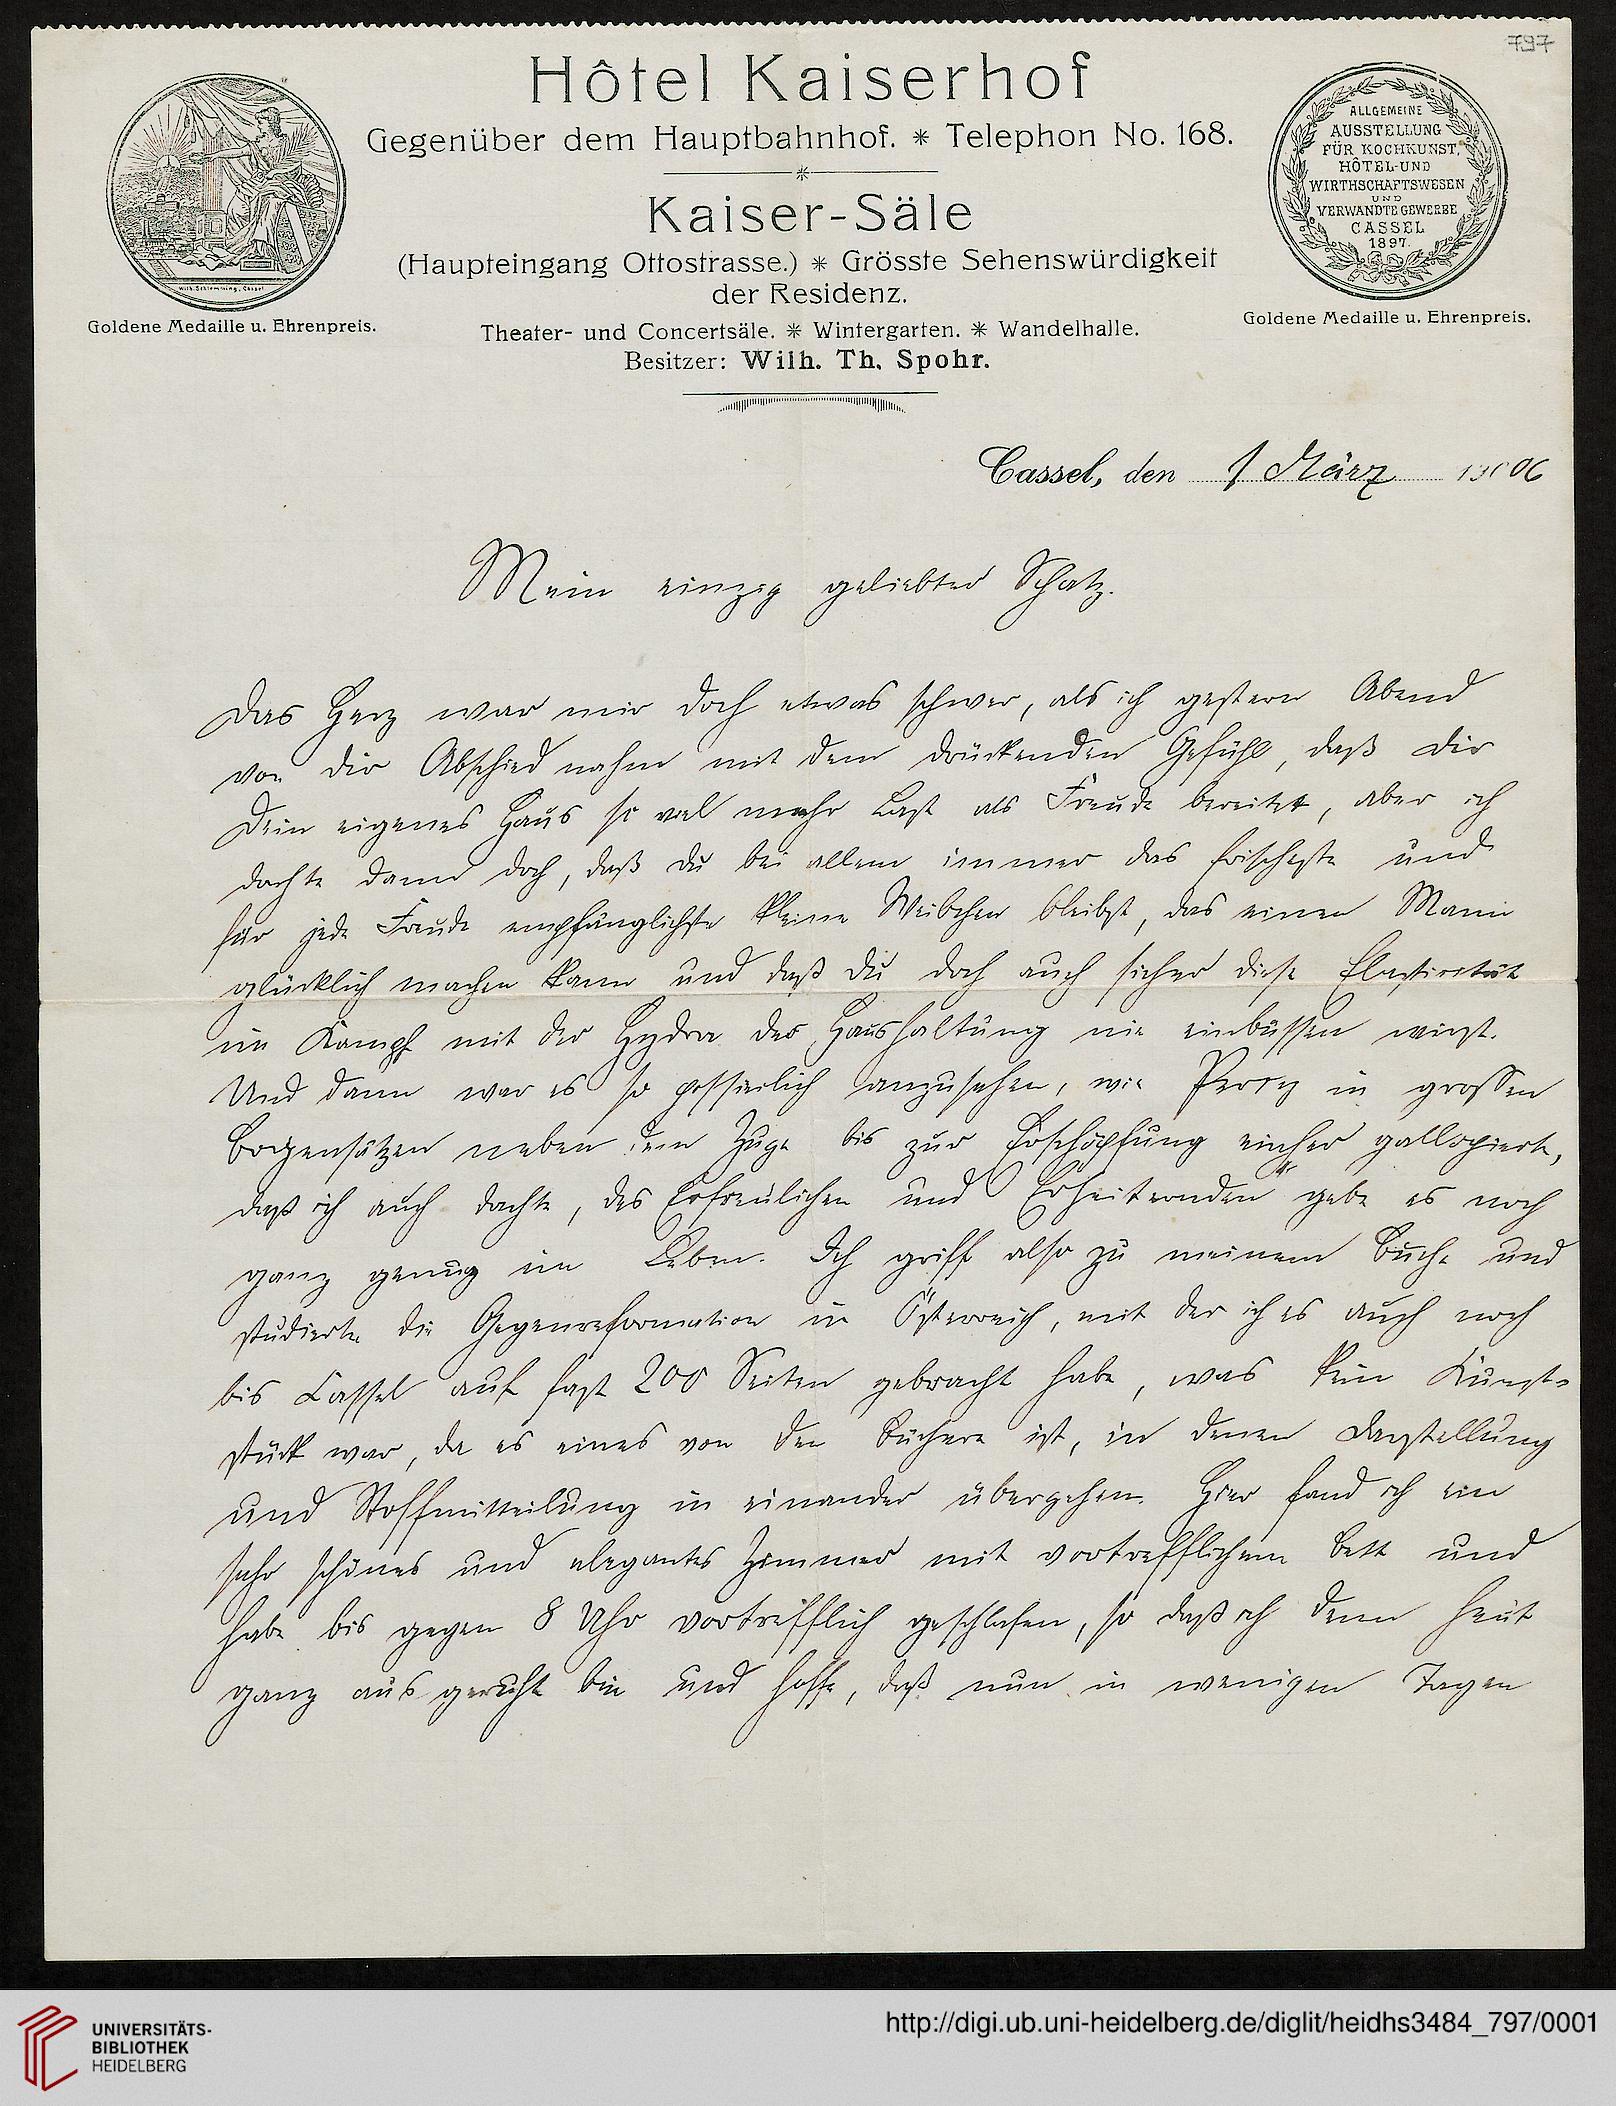 797
Hôtel Kaiserhof
Gegenüber dem Hauptbahnhof. * Telephon No. 168.
Kaiser-Säle
(Haupteingang Ottostrasse.) * Grösste Sehenswürdigkeit
der Residenz.
Theater- und Concertsäle. * Wintergarten. * Wandelhalle.
Besitzer: Wilh. Th. Spohr.
Wilh. Schlemming, Cassel
Goldene Medaille u. Ehrenpreis.
ALLGEMEINE
AUSSTELLUNG
FÜR KOCHKUNST,
HÔTEL-UND
WIRTHSCHAFTSWESEN
UND
VERWANDTE GEWERBE
CASSEL
1897.
Goldene Medaille u. Ehrenpreis.
Cassel, den 1 März 1906
Mein einzig geliebter Schatz.
Das Herz war mir doch etwas schwer, als ich gestern Abend
von dir Abschied nahm mit dem drückenden Gefühl, daß dir
Dein eigenes Haus so viel mehr Last als Freude bereitet, aber ich
dachte dann doch, daß du bei allem immer das frischeste und
für jede Freude empfänglichste kleine Weibchen bleibst, das einen Mann
glücklich machen kann und daß du doch auch sicher diese Elasticität
im Kampf mit der Hydra der Haushaltung nie einbüssen wirst.
Und dann war es so possierlich anzusehen, wie Percy in grossen
Bogensätzen neben dem Zuge bis zur Erschöpfung einher gallopierte,
daß ich auch dachte, des Erfreulichen und Erheiternden gebe es noch
ganz genug im Leben. Ich griff also zu meinem Buche und
studierte die Gegenreformation in Österreich, mit der ich es auch noch
bis Cassel auf fast 200 Seiten gebracht habe, was kein Kunst-
stück war, da es eines von den Büchern ist, in denen Darstellung
und Stoffmitteilung in einander übergehen. Hier fand ich ein
sehr schönes und elegantes Zimmer mit vortrefflichem Bett und
habe bis gegen 8 Uhr vortrefflich geschlafen, so daß ich denn heut
ganz ausgeruht bin und hoffe, daß nun in wenigen Tagen
UNIVERSITÄTS-
BIBLIOTHEK
HEIDELBERG
http://digi.ub.uni-heidelberg.de/diglit/heidhs3484_797/0001